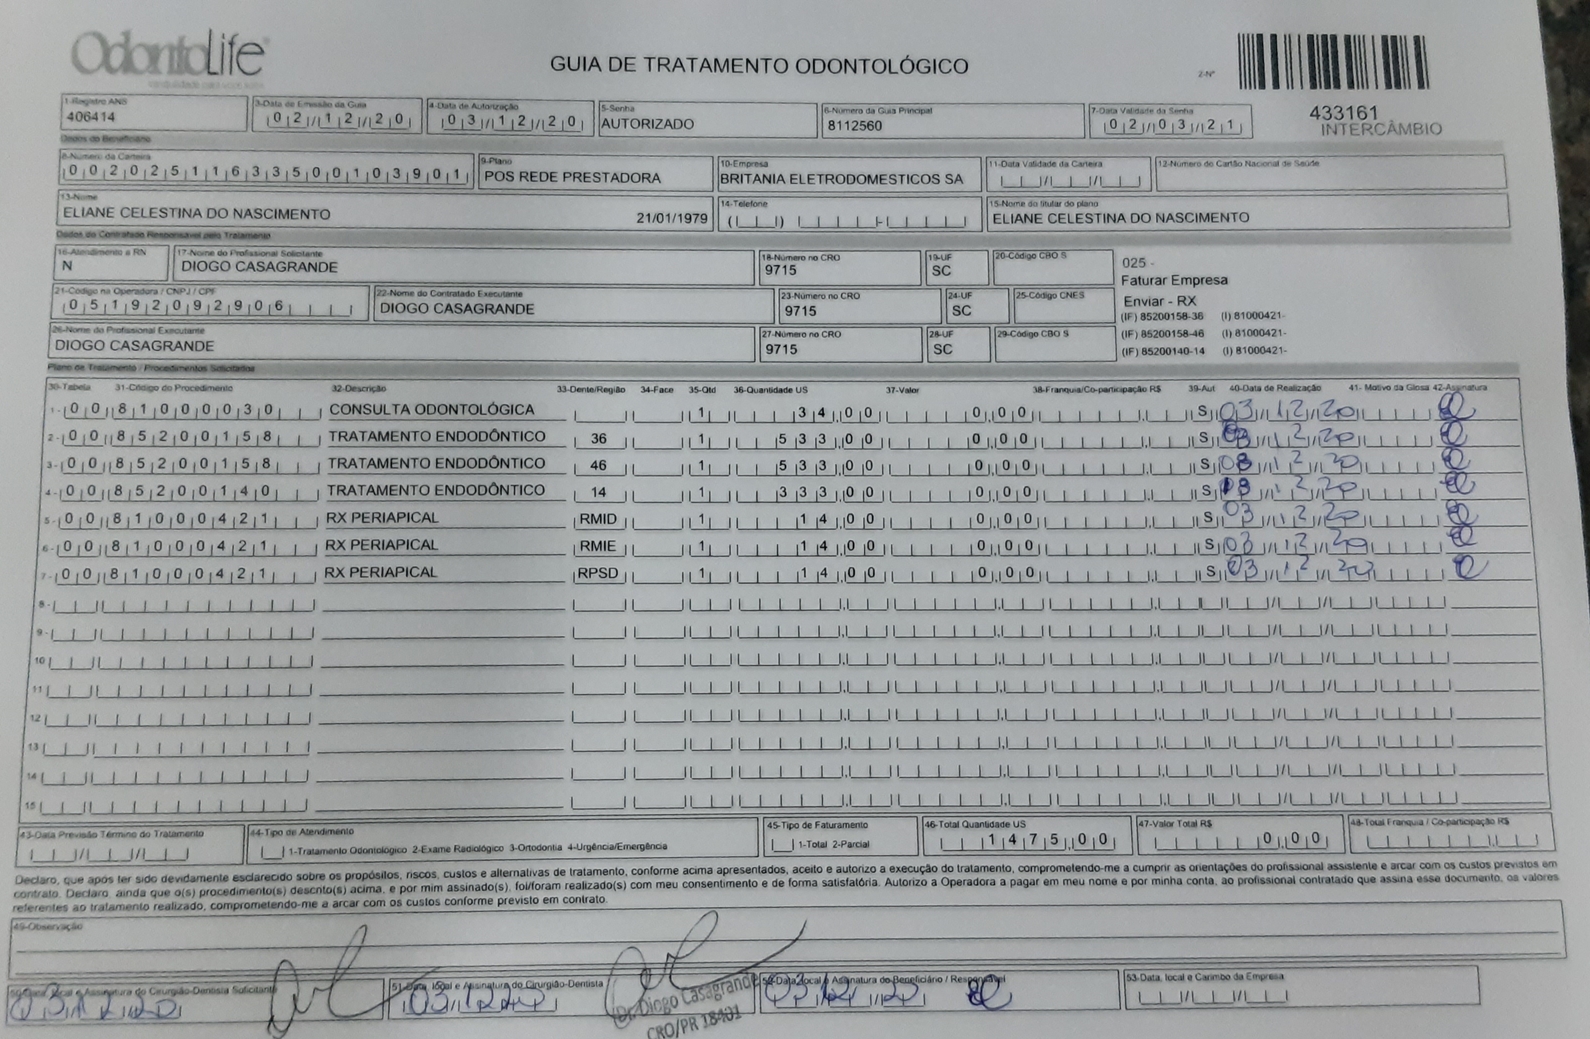 OdontoLife
GUIA DE TRATAMENTO ODONTOLÓGICO
2-Nº
433161
INTERCÂMBIO
1-Registro ANS
406414
3-Data de Emissão da Guia
02/12/20
4-Data de Autorização
03/12/20
5-Senha
AUTORIZADO
6-Número da Guia Principal
8112560
7-Data Validade da Senha
02/03/21
Dados do Beneficiário
8-Número da Carteira
00202511633500103901
9-Plano
POS REDE PRESTADORA
10-Empresa
BRITANIA ELETRODOMESTICOS SA
11-Data Validade da Carteira
12-Número do Cartão Nacional de Saúde
13-Nome
ELIANE CELESTINA DO NASCIMENTO 21/01/1979
14-Telefone
15-Nome do titular do plano
ELIANE CELESTINA DO NASCIMENTO
Dados do Contratado Responsável pelo Tratamento
16-Atendimento a RN
N
17-Nome do Profissional Solicitante
DIOGO CASAGRANDE
18-Número no CRO
9715
19-UF
SC
20-Código CBO S
025 -
Faturar Empresa
Enviar - RX
(IF) 85200158-36 (I) 81000421-
(IF) 85200158-46 (I) 81000421-
(IF) 85200140-14 (I) 81000421-
21-Código na Operadora / CNPJ / CPF
05192092906
22-Nome do Contratado Executante
DIOGO CASAGRANDE
23-Número no CRO
9715
24-UF
SC
25-Código CNES
26-Nome do Profissional Executante
DIOGO CASAGRANDE
27-Número no CRO
9715
28-UF
SC
29-Código CBO S
Plano de Tratamento / Procedimentos Solicitados
30-Tabela 31-Código do Procedimento 32-Descrição 33-Dente/Região 34-Face 35-Qtd 36-Quantidade US 37-Valor 38-Franquia/Co-participação R$ 39-Aut 40-Data de Realização 41- Motivo da Glosa 42-Assinatura
1- 00 81000030 CONSULTA ODONTOLÓGICA 1 34,00 0,00 S 03/12/20
2- 00 85200158 TRATAMENTO ENDODÔNTICO 36 1 533,00 0,00 S 03/12/20
3- 00 85200158 TRATAMENTO ENDODÔNTICO 46 1 533,00 0,00 S 03/12/20
4- 00 85200140 TRATAMENTO ENDODÔNTICO 14 1 333,00 0,00 S 03/12/20
5- 00 81000421 RX PERIAPICAL RMID 1 14,00 0,00 S 03/12/20
6- 00 81000421 RX PERIAPICAL RMIE 1 14,00 0,00 S 03/12/20
7- 00 81000421 RX PERIAPICAL RPSD 1 14,00 0,00 S 03/12/20
8-
9-
10
11
12
13
14
15
43-Data Previsão Término do Tratamento
44-Tipo de Atendimento
1-Tratamento Odontológico 2-Exame Radiológico 3-Ortodontia 4-Urgência/Emergência
45-Tipo de Faturamento
1-Total 2-Parcial
46-Total Quantidade US
1475,00
47-Valor Total R$
0,00
48-Total Franquia / Co-participação R$
Declaro, que após ter sido devidamente esclarecido sobre os propósitos, riscos, custos e alternativas de tratamento, conforme acima apresentados, aceito e autorizo a execução do tratamento, comprometendo-me a cumprir as orientações do profissional assistente e arcar com os custos previstos em
contrato. Declaro, ainda que o(s) procedimento(s) descrito(s) acima, e por mim assinado(s), foi/foram realizado(s) com meu consentimento e de forma satisfatória. Autorizo a Operadora a pagar em meu nome e por minha conta, ao profissional contratado que assina esse documento, os valores
referentes ao tratamento realizado, comprometendo-me a arcar com os custos conforme previsto em contrato.
49-Observação
50-Data, local e Assinatura do Cirurgião-Dentista Solicitante
03/12/20
51-Data, local e Assinatura do Cirurgião-Dentista
03/12/20
Dr. Diogo Casagrande
CRO/PR 18401
52-Data, local e Assinatura do Beneficiário / Responsável
03/12/20
53-Data, local e Carimbo da Empresa